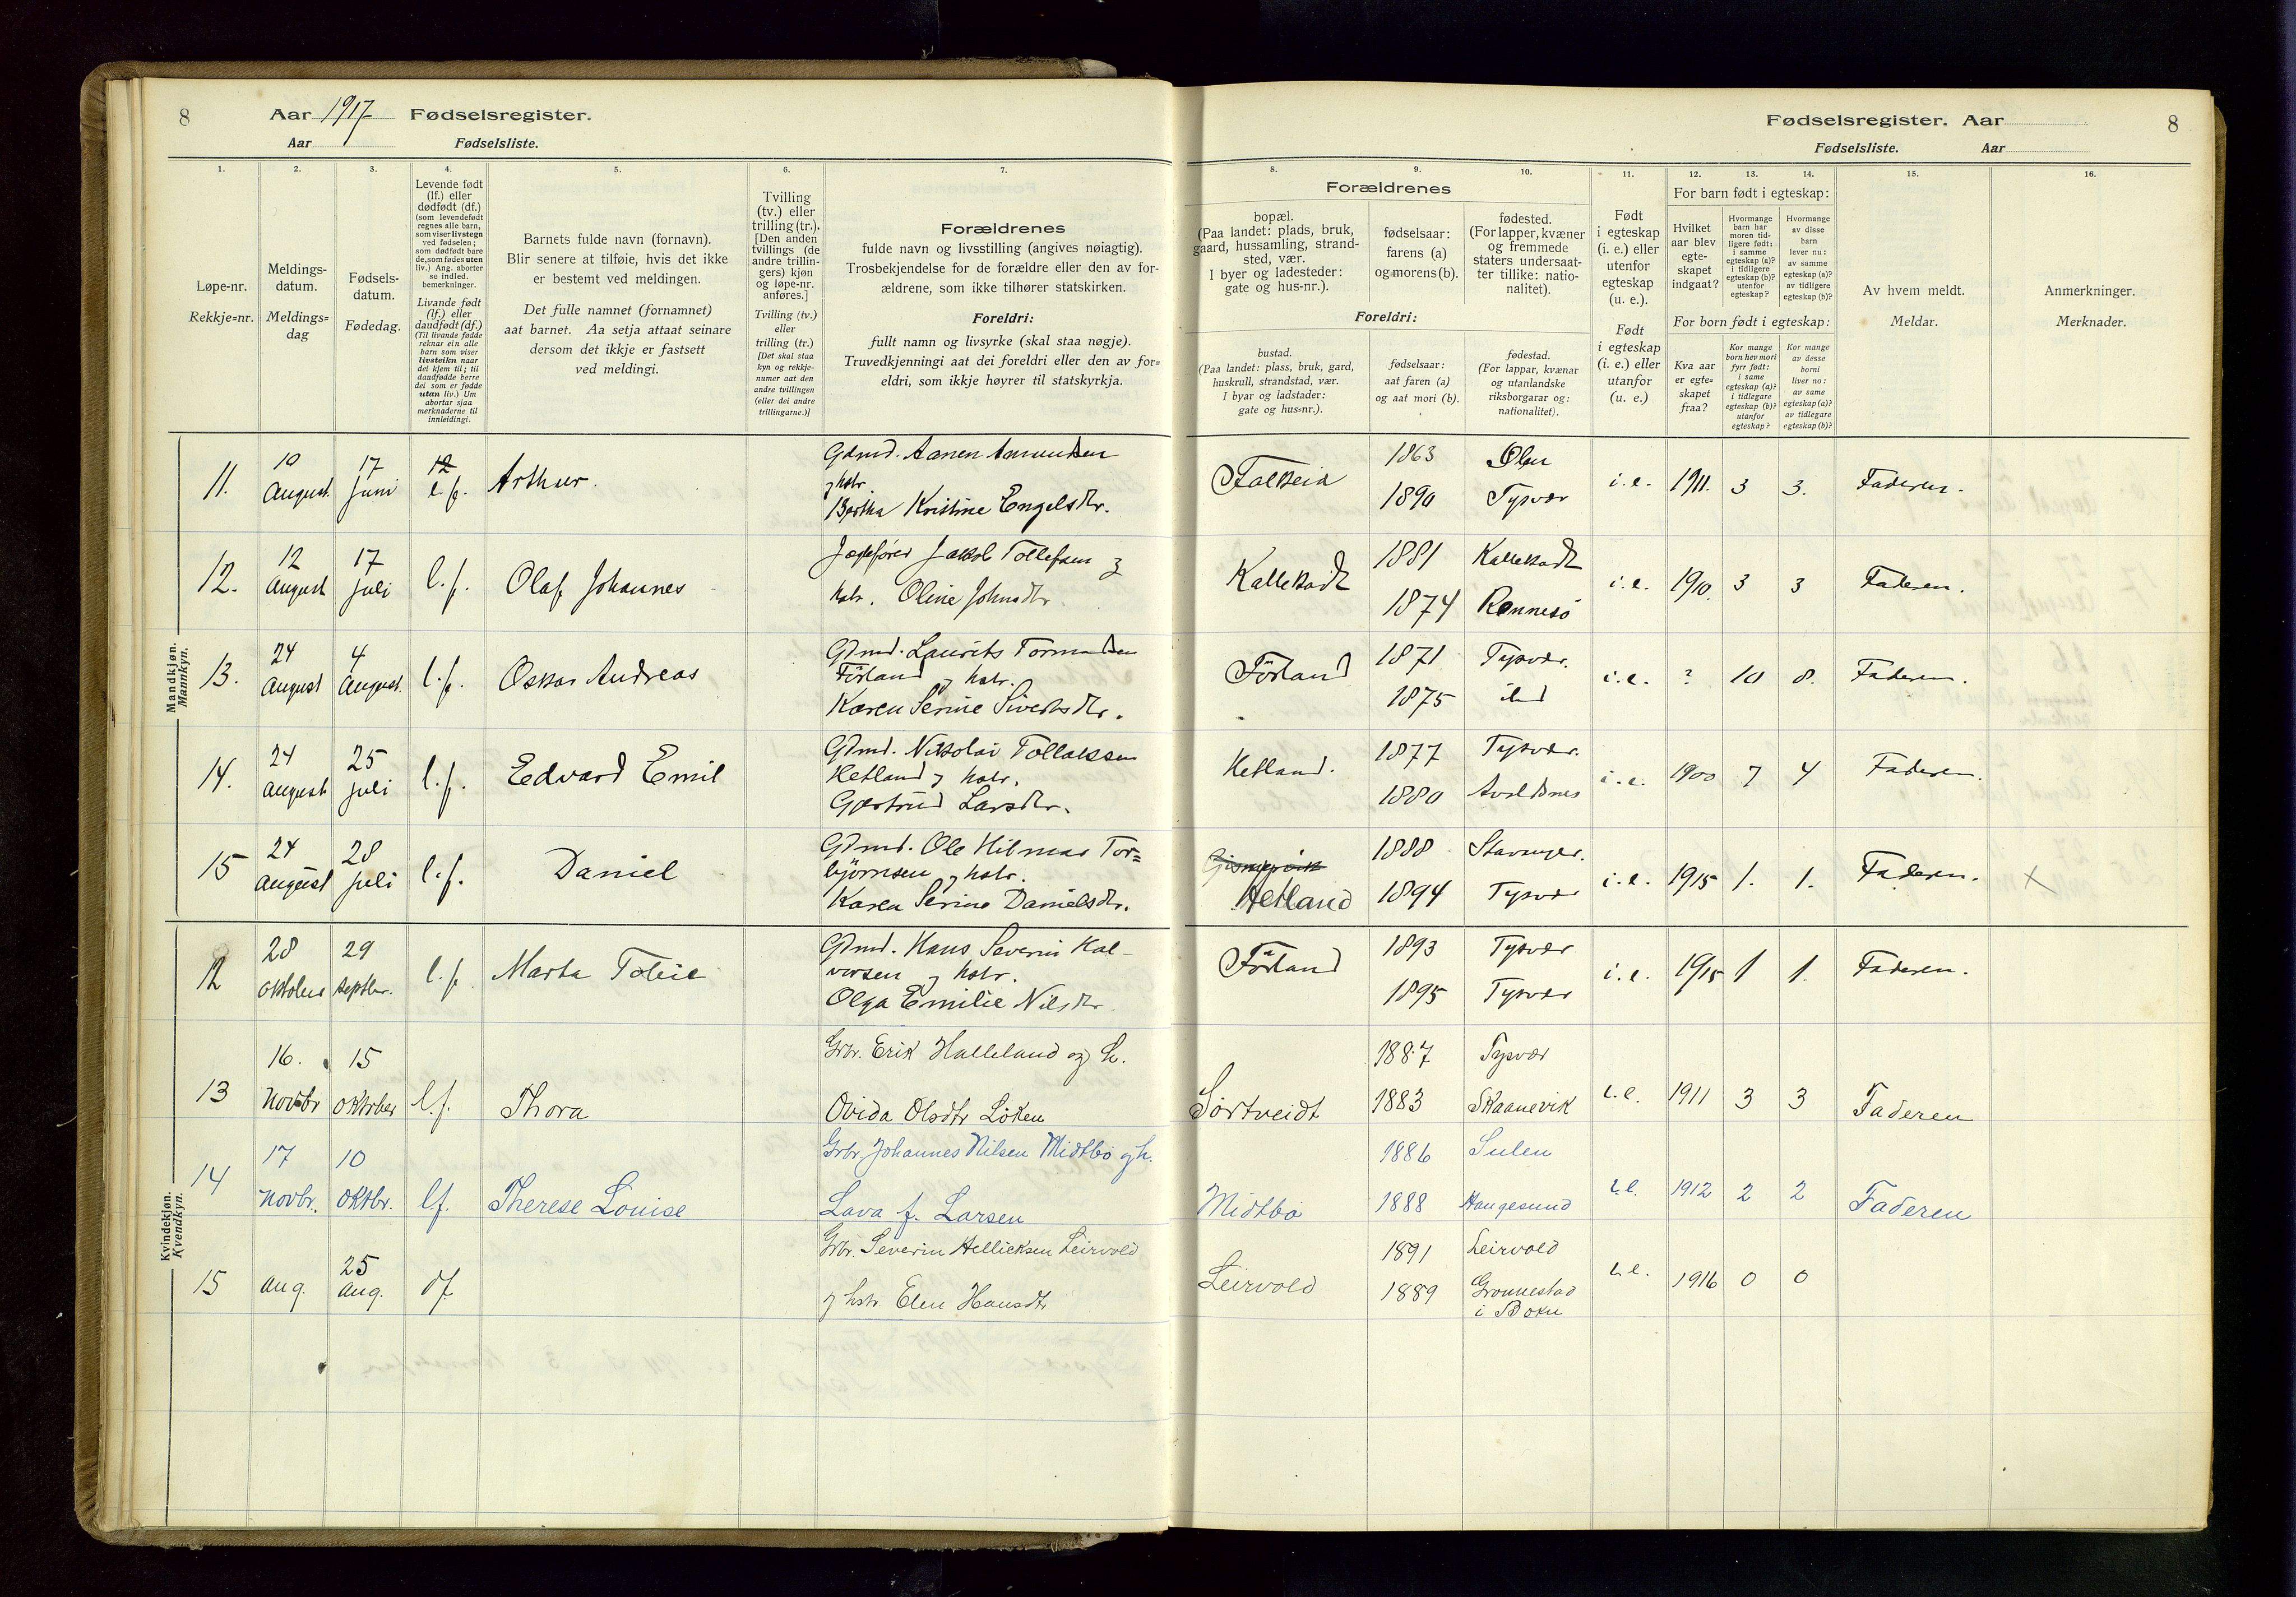 8
Aar 1917 Fødselsregister.
Aar Fødselsliste.
Fødselsregister. Aar
8
Fødselsliste. Aar
1. 2. 3. 4. 5. 6. 7. 8. 9. 10. 11. 12. 13. 14. 15. 16.
Løpe-nr.
Rekkje=nr.
Meldings-
datum.
Meldings=
dag
Fødsels-
datum.
Fødedag.
Levende født
(lf.) eller
dødfødt (df.)
(som levendefødt
regnes alle barn,
som viser livstegn
ved fødselen;
som dødfødt bare
de, som fødes uten
liv.) Ang. aborter
se indled.
bemerkninger.
Livande født
(lf.) eller
daudfødt (df.)
(Til livande fødde
reknar ein alle
barn som viser
livsteikn naar
dei kjem til; til
daudfødde berre
dei som er fødde
utan liv.) Um
abortar sjaa
merknaderne til
innleidingi.
Barnets fulde navn (fornavn).
Blir senere at tilføie, hvis det ikke
er bestemt ved meldingen.
Det fulle namnet (fornamnet)
aat barnet. Aa setja attaat seinare
dersom det ikkje er fastsett
ved meldingi.
Tvilling
(tv.) eller
trilling (tr.).
[Den anden
tvillings (de
andre trillin-
gers) kjøn
og løpe-nr.
anføres.]
Tvilling (tv.)
eller
trilling (tr.)
[Det skal staa
kyn og rekkje-
numer aat den
andre tvillingen
(eller dei andre
trillingarne.)]
Forældrenes
fulde navn og livsstilling (angives nøiagtig).
Trosbekjendelse for de forældre eller den av for-
ældrene, som ikke tilhører statskirken.
Foreldri:
fullt namn og livsyrke (skal staa nøgje).
Truvedkjenningi aat dei foreldri eller den av for=
eldri, som ikkje høyrer til statskyrkja.
Forældrenes
bopæl.
(Paa landet: plads, bruk,
gaard, hussamling, strand-
sted, vær.
I byer og ladesteder:
gate og hus-nr.).
fødselsaar:
farens (a)
og morens (b).
fødested.
(For lapper, kvæner
og fremmede
staters undersaat-
ter tillike: natio-
nalitet).
Foreldri:
bustad.
(Paa landet: plass, bruk, gard,
huskrull, strandstad, vær.
I byar og ladstader:
gate og hus=nr.).
fødselsaar:
aat faren (a)
og aat mori (b).
fødestad.
(For lappar, kvænar
og utanlandske
riksborgarar og:
nationalitet).
Født
i egteskap
(i. e.) eller
utenfor
egteskap
(u. e.).
Født
i egteskap
(i. e.) eller
utanfor
(u. e.)
For barn født i egteskap:
Hvilket
aar blev
egte-
skapet
indgaat?
Hvormange
barn har
moren tid-
ligere født:
i samme
egteskap (a)?
i tidligere
egteskap (b)?
utenfor
egteskap?
Hvormange
av disse
barn
lever nu:
av samme
egteskap (a)?
av tidligere
egteskap (b)?
For born født i egteskap:
Kva aar
er egte=
skapet
fraa?
Kor mange
born hev mori
fyrr født:
i same
egteskap (a)?
i tidlegare
egteskap (b)?
utanfor
egteskap?
Kor mange
av desse
borni
liver no:
av same
egteskap (a)?
av tidlegare
egteskap (b)?
Av hvem meldt.
Meldar.
Anmerkninger.
Merknader.
Mandkjøn.
Mannkyn.
11. 10 August 17 juni 12 l.f. Arthur. Gdmd. Aanen Amundsen
og hstr.
Bertha Kristine Engelsdtr. Falkeid 1863 Ølen 1890 Tysvær i.e. 1911. 3 3. Faderen.
12. 12 August 17 juli l.f. Olaf Johannes Jakob Tollefsen og
hstr. Oline Johnsdtr. 1881 1874 Rennesø i.e. 1910. 3 3 Faderen.
13. 24 August 4 August. l.f. Oskar Andreas Gdmd. Laurits
Förland og hstr.
Karen Serine Sivertsdtr. Förland 1871 Tysvær. 1875 i.e. ? 10 8. Faderen.
14. 24 August 25 juli l.f. Edvard Emil Gdmd. Nikolai Tollaksen
Hetland og hstr.
Gjertrud Larsdtr. Hetland. 1877 Tysvær. 1880 Avaldsnes i.e. 1900 7 4 Faderen.
15 24 August 28 juli l.f. Daniel Gdmd. Ole Hilmar Tor=
bjørnsen og hstr.
Karen Serine Danielsdtr. Hetland 1888 Stavanger. 1894 Tysvær i.e. 1915 1. 1. Faderen. X
Kvindekjøn.
Kvendkyn.
12 28 oktober 29 septbr. l.f. Marta Tobie Gdmd. Hans Severin Hal-
vorsen og hstr.
Olga Emilie Nilsdtr. Förland 1893 Tysvær 1895 Tysvær i.e. 1915 1 1. Faderen.
13 16. Novbr 15 oktober l.f. Thora Grbr. Erik Halleland og h.
Ovida Olsdtr Løken Sørtveidt 1887 Tysvær 1883 Skaanevik i.e. 1911 3 3 Faderen
14 17 Novbr. 10 Oktbr. l.f. Therese Louise Grbr Johannes Nilsen Midtbø og h.
Lava f. Larsen Midtbø 1886 Sulen 1888 Haugesund i.e. 1912 2 2 Faderen
15 aug. 25 aug. df. Grbr. Severin Mellicksen Leirvold
og hstr Elen Hansdtr Leirvold 1891 Leirvold 1889 Grønnestad
i Bokn i.e. 1916 0 0